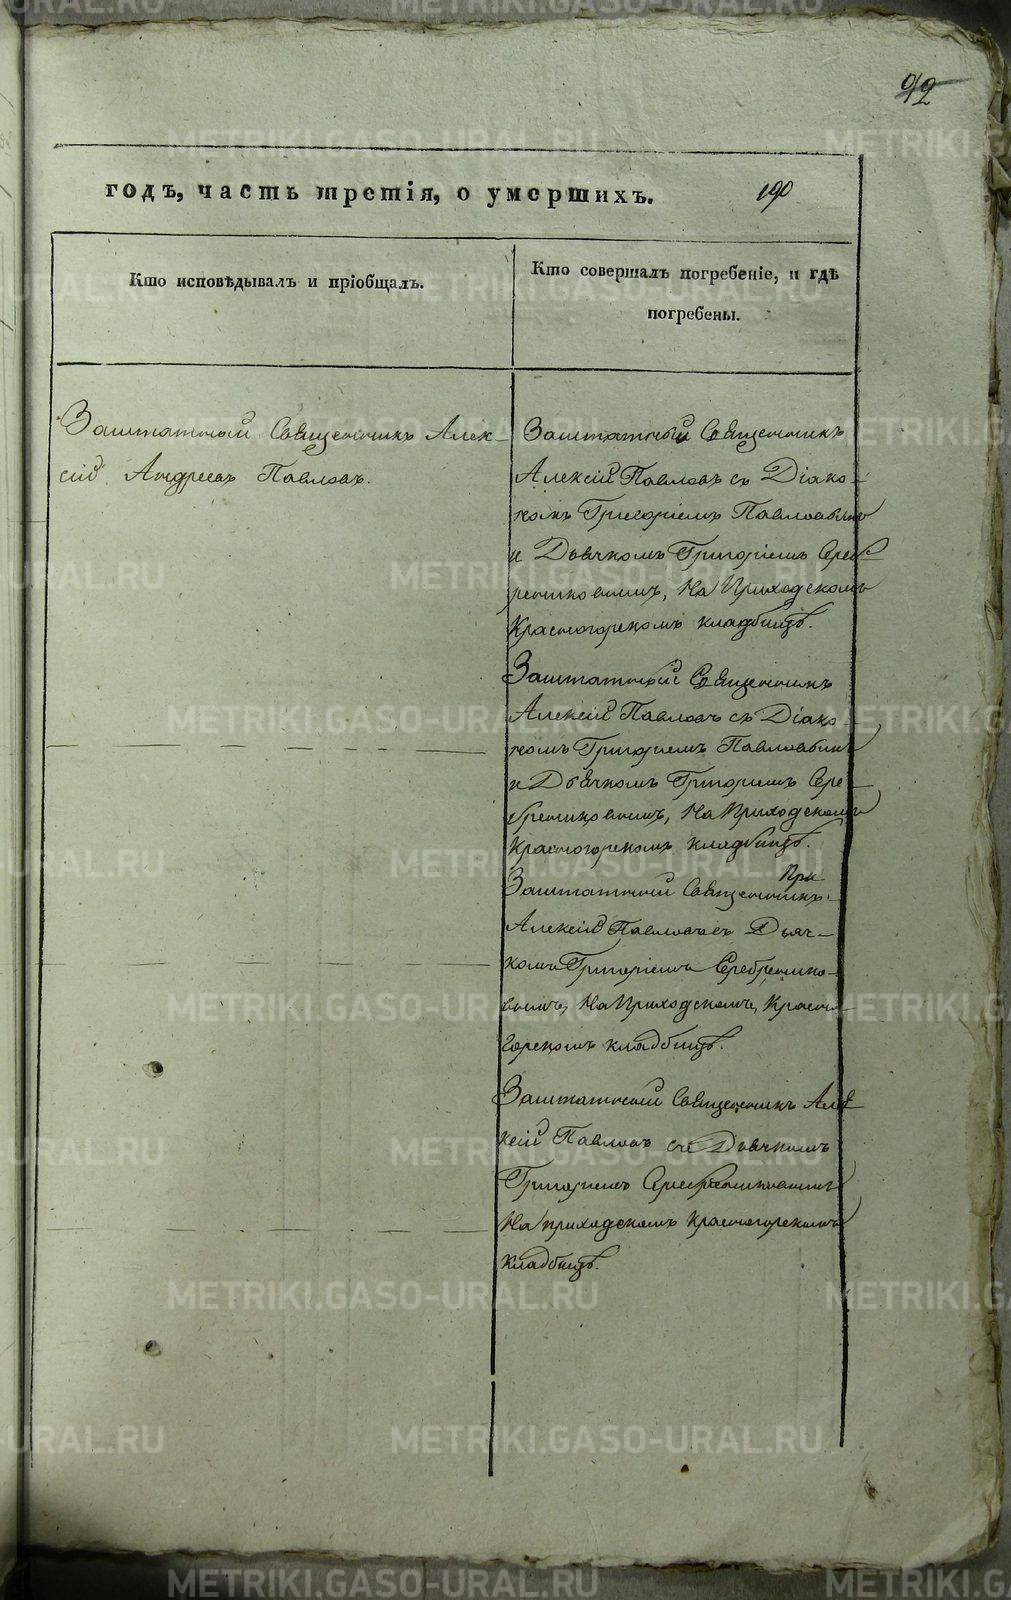 92
годъ, часть третія, о умершихъ.
190
Кто исповѣдывалъ и пріобщалъ.
Кто совершалъ погребеніе, и гдѣ
погребены.
Заштатный Священникъ Алек-
сій Андреевъ Павловъ.
Заштатный Священникъ
Алексій Павловъ съ Діако-
номъ Григоріемъ Павловымъ
и Дьячкомъ Григоріемъ Сереб-
рениковымъ, На Приходскомъ
Красногорскомъ кладбищѣ.
Заштатный Священникъ
Алексій Павловъ съ Діако-
номъ Григоріемъ Павловымъ
и Дьячкомъ Григоріемъ Сере-
брениковымъ, На Приходскомъ
Красногорскомъ кладбищѣ.
При
Заштатный Священникъ
Алексій Павловъ съ Дьяч-
комъ Григоріемъ Серебренико-
вымъ, На Приходскомъ, Красно-
горскомъ кладбищѣ.
Заштатный Священникъ Алек-
сій Павловъ съ Дьячкомъ
Григоріемъ Серебрениковымъ
На приходскомъ Красногорскомъ
кладбищѣ.
METRIKI.GASO-URAL.RU